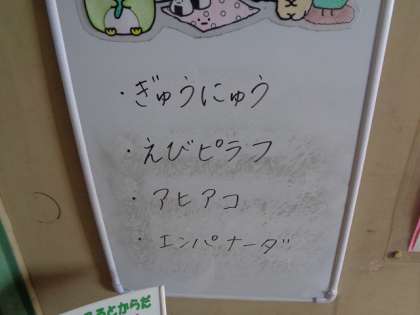 ・ぎゅうにゅう
・えびピラフ
・アヒアコ
・エンパナーダ
るとからだ